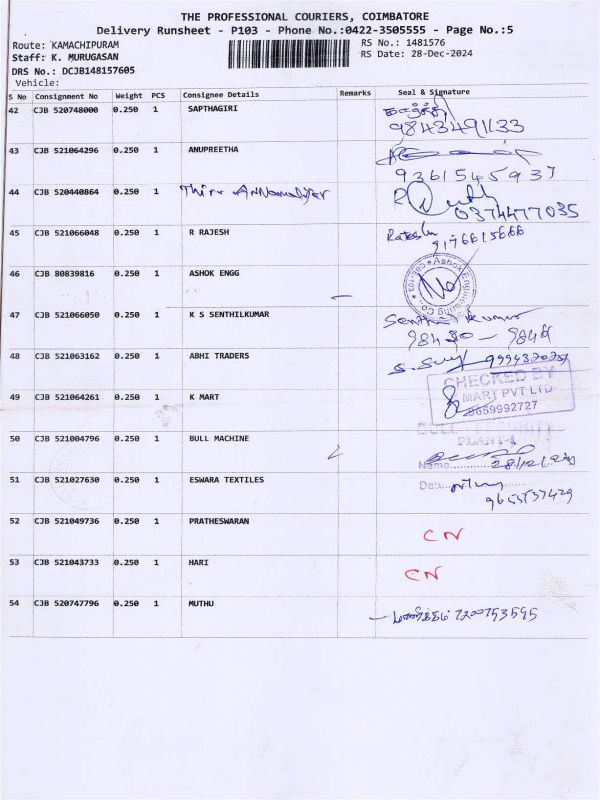 THE PROFESSIONAL COURIERS, COIMBATORE
Delivery Runsheet - P103 - Phone No.:0422-3505555 - Page No.:5
Route: KAMACHIPURAM
RS No.: 1481576
Staff: K. MURUGASAN
RS Date: 28-Dec-2024
DRS No.: DCJB148157605
Vehicle:
S No Consignment No Weight PCS Consignee Details Remarks Seal & Signature
42 CJB 520748000 0.250 1 SAPTHAGIRI
9843491133
43 CJB 521064296 0.250 1 ANUPREETHA
9361545937
44 CJB 520440864 0.250 1 Thiru
0374477035
45 CJB 521066048 0.250 1 R RAJESH
9176615666
46 CJB 80839816 0.250 1 ASHOK ENGG
Ashok Engineering Co.
47 CJB 521066050 0.250 1 K S SENTHILKUMAR Senthil Kumar
98430 - 9848
48 CJB 521063162 0.250 1 ABHI TRADERS
CHECKED BY
49 CJB 521064261 0.250 1 K MART MART PVT LTD
9659992727
PLANT-I
50 CJB 521004796 0.250 1 BULL MACHINE
Name 28/12/24
51 CJB 521027630 0.250 1 ESWARA TEXTILES
Date
9655737429
52 CJB 521049736 0.250 1 PRATHESWARAN CN
53 CJB 521043733 0.250 1 HARI CN
54 CJB 520747796 0.250 1 MUTHU 7200753595